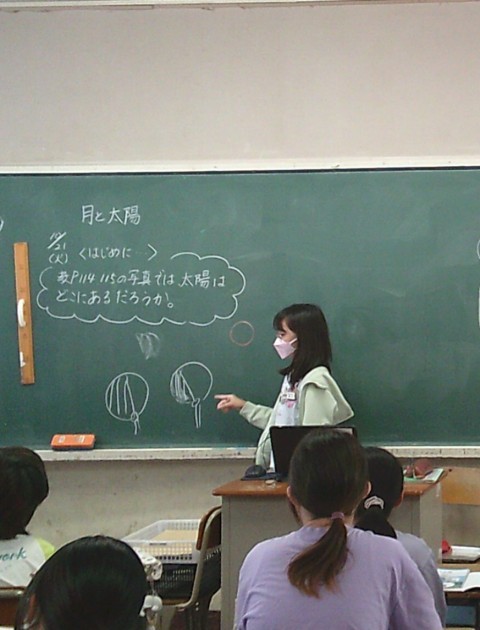 月と太陽
10/21
(火) くはじめに >
教P114 115の写真では太陽は
どこにあるだろうか。
work